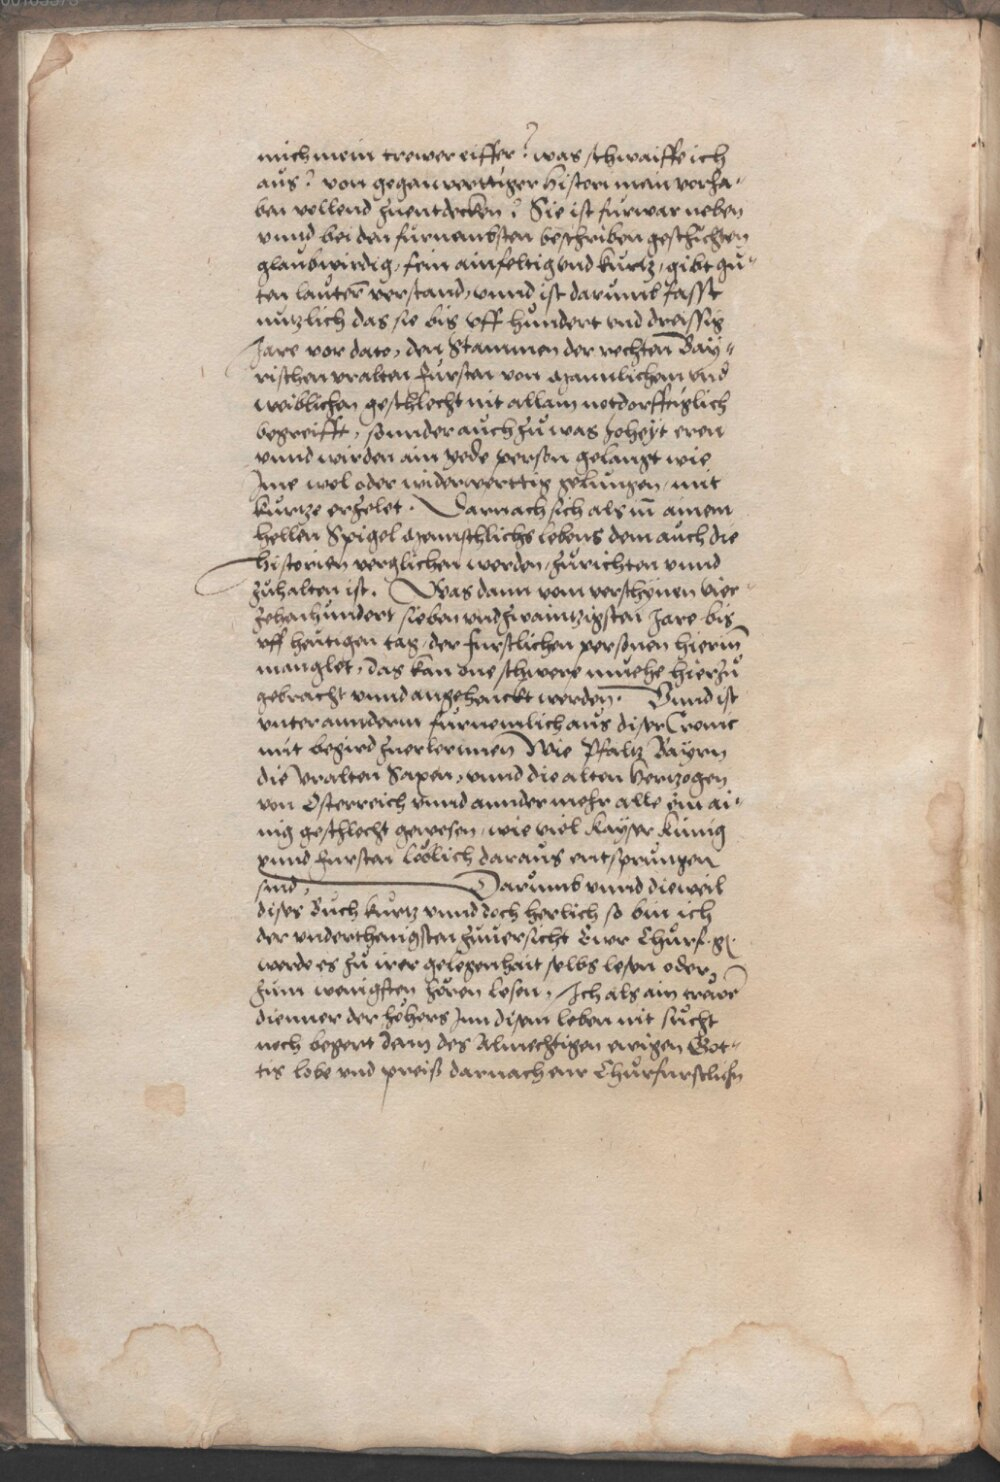 mich mein trewer eiffer? was schwaiffe ich
aus? von gegenwerttiger histori mein vorha-
ben vollend zuentdecken? Sie ist furwar neben
vnnd bei den furnembsten beschriben geschichten
glaubwirdig, fein ainfeltig vnd kurtz, gibt gu-
ten lautern verstand, vnnd ist darumb fasst
nutzlich das sie bis vff hundert vnd dreissig
Jare vor dato, den Stammen der rechten Bay-
rischen vralten Fursten von Mannlichem vnd
weiblichen geschlecht nit allain notdorfftiglich
begreifft, sonnder auch zu was hoheyt eren
vnnd wirden ain yede person gelangt wie
Jme wol oder widerwerttig gelungen, mit
kurtze erzelet. Darnach sich als inn ainem
hellen Spigel Menschlichs lebens dem auch die
historien verglichen werden, zurichten vnnd
zuhalten ist. Was dann vom verschynen vier-
zehenhundert sieben vnd zwaintzigsten Jare bis
vff heutigen tag, der furstlichen personen hierinn
manglet, das kan one schwere muehe hierzu
gebracht vnnd angehenckt werden. Vnnd ist
vnter annderm furnemlich aus diser Cronic
mit begird zuerlernnen Wie Pfaltz Bayrn
die vralten Saxen, vnnd die alten Hertzogen
von Osterreich vnnd annder mehr alle ein ai-
nig geschlecht gewesen, wie viel Kayser Kunig
vnnd Fursten loblich daraus entsprungen
sind, Darumb vnnd dieweil
dises Buch kurtz vnnd doch herlich so bin ich
der vnderthenigsten zuuersicht Ewr Churf. g.
werde es zu irer gelegenhait selbs lesen oder
zum wenigsten horen lesen, Ich als ain trewer
dienner der hohers Jnn disem leben nit sucht
noch begert dann des Almechtigen ewigen Got-
tis lobe vnd preiß darnach eur Churfurstlichn